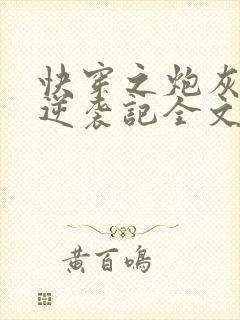 快穿之炮灰
逆袭記全文
黄百鳴